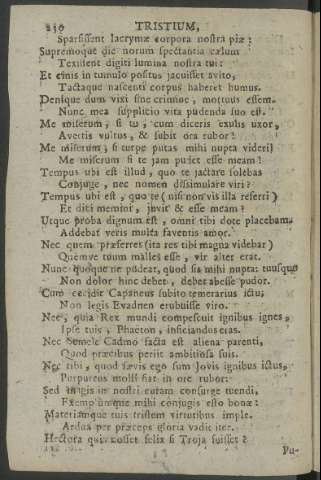 230 TRISTIUM,
Sparsissent lacrymæ corpora nostra piæ:
Supremoque die norum spectantia cælum
Texissent digiti lumina nostra tui:
Et cinis in tumulo positus jacuisset avito,
Tactaque nascenti corpus haberet humus.
Denique dum vixi sine crimine, mortuus essem.
Nunc mea supplicio vita pudenda suo est.
Me miserum, si tu, cum diceris exulis uxor,
Avertis vultus, & subit ora rubor!
Me miserum, si turpe putas mihi nupta videri!
Me miserum si te jam pudet esse meam!
Tempus ubi est illud, quo te jactare solebas
Conjuge, nec nomen dissimulare viri?
Tempus ubi est, quo te (nisi non vis illa referri)
Et dici memini, juvit & esse meam?
Utque proba dignum est, omni tibi dote placebam,
Addebat veris multa faventis amor.
Nec quem præferres (ita res tibi magna videbar)
Quemve tuum malles esse, vir alter erat.
Nunc quoque ne pudeat, quod sis mihi nupta: tuusque
Non dolor hinc debet, debet abesse pudor.
Cum cecidit Capaneus subito temerarius ictu,
Non legis Evadnen erubuisse viro.
Nec, quia Rex mundi compescuit ignibus ignes,
Ipse tuis, Phaëton, inficiandus eras.
Nec Semele Cadmo facta est aliena parenti,
Quod precibus periit ambitiosa suis.
Nec tibi, quod sævis ego sum Jovis ignibus ictus,
Purpureus molli fiat in ore rubor:
Sed magis in nostri curam consurge tuendi,
Exemplumque mihi conjugis esto bonæ:
Materiamque tuis tristem virtutibus imple.
Ardua per præceps gloria vadit iter.
Hectora quis nosset felix si Troja fuisset?
Pu-